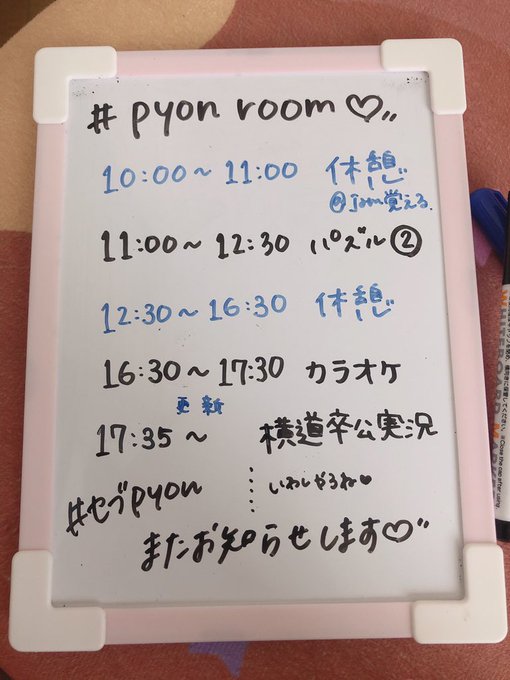 # pyon room♡,,
10:00～11:00 休憩
11:00～12:30 パズル②
12:30～16:30 休憩
16:30～17:30 カラオケ
更新
17:35～ 横道卒公実況
#セブpyon
またお知らせします♡"
WHITEBOARD MARKER